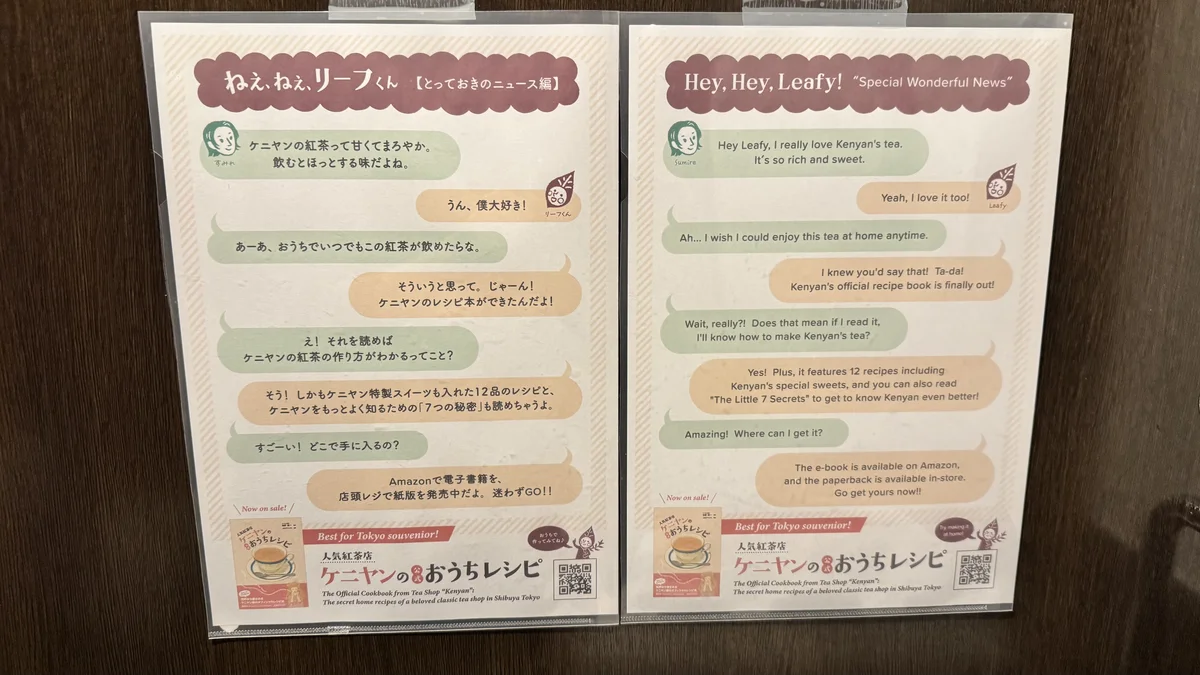 ねぇ、ねぇ、リーフくん 【とっておきのニュース編】
ケニヤンの紅茶って甘くてまろやか。
飲むとほっとする味だよね。
すみれ
うん、僕大好き!
リーフくん
あーあ、おうちでいつでもこの紅茶が飲めたらな。
そういうと思って。じゃーん!
ケニヤンのレシピ本ができたんだよ!
え! それを読めば
ケニヤンの紅茶の作り方がわかるってこと?
そう! しかもケニヤン特製スイーツも入れた12品のレシピと、
ケニヤンをもっとよく知るための「7つの秘密」も読めちゃうよ。
すごーい! どこで手に入るの?
Amazonで電子書籍を、
店頭レジで紙版を発売中だよ。迷わずGO!!
Now on sale!
ケニヤンの
おうちレシピ
Best for Tokyo souvenir!
おうちで
作ってんでね♪
人気紅茶店
ケニヤンの公式おうちレシピ
The Official Cookbook from Tea Shop "Kenyan":
The secret home recipes of a beloved classic tea shop in Shibuya Tokyo
Hey, Hey, Leafy! "Special Wonderful News"
Hey Leafy, I really love Kenyan's tea.
It's so rich and sweet.
Sumire
Yeah, I love it too!
Leafy
Ah... I wish I could enjoy this tea at home anytime.
I knew you'd say that! Ta-da!
Kenyan's official recipe book is finally out!
Wait, really?! Does that mean if I read it,
I'll know how to make Kenyan's tea?
Yes! Plus, it features 12 recipes including
Kenyan's special sweets, and you can also read
"The Little 7 Secrets" to get to know Kenyan even better!
Amazing! Where can I get it?
The e-book is available on Amazon,
and the paperback is available in-store.
Go get yours now!!
Now on sale!
ケニヤンの
おうちレシピ
Best for Tokyo souvenir!
Try making it
at home!
人気紅茶店
ケニヤンの公式おうちレシピ
The Official Cookbook from Tea Shop "Kenyan":
The secret home recipes of a beloved classic tea shop in Shibuya Tokyo